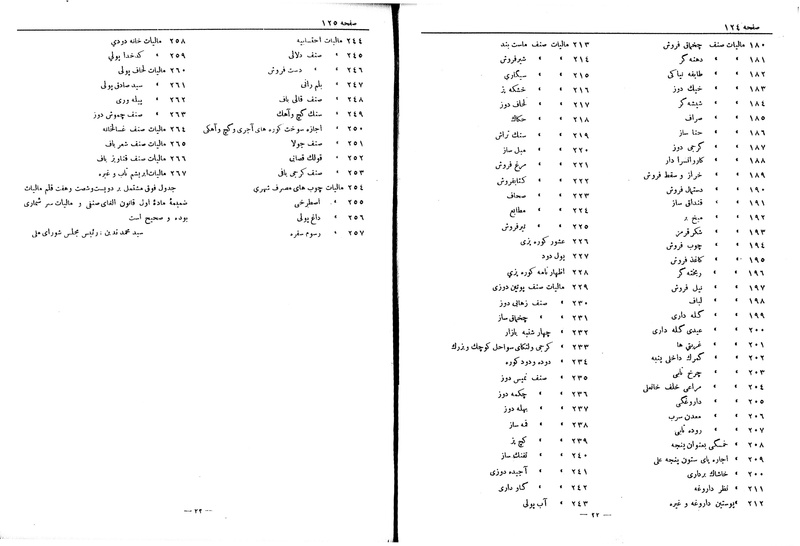 صفحه ۱۲۴
۱۸۰ مالیات صنف چخماقی فروش
۱۸۱ » » دهنه گر
۱۸۲ » » طایفه نیاکی
۱۸۳ » » خیك دوز
۱۸۴ » » شیشه گر
۱۸۵ » » صراف
۱۸۶ » » حنا ساز
۱۸۷ » » گرجی دوز
۱۸۸ » » کاروانسرا دار
۱۸۹ » » خراز و سقط فروش
۱۹۰ » » دستمال فروش
۱۹۱ » » قنداقی ساز
۱۹۲ » » میخ بر
۱۹۳ » » شکر قرمز
۱۹۴ » » چوب فروش
۱۹۵ » » کاغذ فروش
۱۹۶ » » ریخته گر
۱۹۷ » » نیل فروش
۱۹۸ » » لباف
۱۹۹ » » گله داری
۲۰۰ » » عیدی گله داری
۲۰۱ » » غربتی ها
۲۰۲ » » گمرك داخلی پنبه
۲۰۳ » » چرخ تابی
۲۰۴ » » مراعی خلف خانعلی
۲۰۵ » » داروغگی
۲۰۶ » » معدن سرب
۲۰۷ » » روده تابی
۲۰۸ » خمسگی بعنوان پنجه
۲۰۹ » اجاره پای ستون پنجه علی
۲۰۰ » خاشاك برداری
۲۱۱ » نظر داروغه
۲۱۲ » پوستین داروغه و غیره
۲۱۳ مالیات صنف ماست بند
۲۱۴ » » شیرفروش
۲۱۵ » » سیگاری
۲۱۶ » » خشکه پز
۲۱۷ » » لحاف دوز
۲۱۸ » » حکاك
۲۱۹ » » سنك تراش
۲۲۰ » » مبل ساز
۲۲۱ » » مرغ فروش
۲۲۲ » » کتابفروش
۲۲۳ » » صحاف
۲۲۴ » » مطابع
۲۲۵ » » تیرفروش
۲۲۶ » عشور کوره پزی
۲۲۷ » پول دود
۲۲۸ » اظهارنامه کوره پزی
۲۲۹ مالیات صنف پوتین دوزی
۲۳۰ » صنف زهانی دوز
۲۳۱ » » چخماقی ساز
۲۳۲ » چهار شنبه بازار
۲۳۳ » کرجی ولتکای سواحل کوچك وبزرك
۲۳۴ » دوده ودود کوره
۲۳۵ » صنف نمیس دوز
۲۳۶ » » چکمه دوز
۲۳۷ » » بهله دوز
۲۳۸ » » قمه ساز
۲۳۹ » » گچ پز
۲۴۰ » » تفنك ساز
۲۴۱ » » آجیده دوزی
۲۴۲ » » گاو داری
۲۴۳ » » آب پولی
— ۲۲ —
صفحه ۱۲۵
۲۴۴ مالیات احتسابیه
۲۴۵ » صنف دلالی
۲۴۶ » » دست فروش
۲۴۷ » بلم رانی
۲۴۸ » صنف قالی باف
۲۴۹ » سنك گچ وآهك
۲۵۰ » اجازه سوخت کوره های آجری وگچ وآهکی
۲۵۱ » صنف جولا
۲۵۲ » قولك قصائی
۲۵۳ » صنف کرجی بافی
۲۵۴ مالیات چوب های مصرف شهری
۲۵۵ » اصطرخی
۲۵۶ » داغ پولی
۲۵۷ » رسوم سفره
۲۵۸ مالیات خانه دودی
۲۵۹ » کدخدا پولی
۲۶۰ مالیات لحاف پولی
۲۶۱ » سید صادق پولی
۲۶۲ » پیله وری
۲۶۳ » صنف چموش دوز
۲۶۴ مالیات صنف غسالخانه
۲۶۵ مالیات صنف شعر باف
۲۶۶ مالیات صنف قناویز باف
۲۶۷ مالیات ابریشم تاب و غیره
جدول فوق مشتمل بر دویست وشصت وهفت قلم مالیات
ضمیمهٔ مادهٔ اول قانون الغای صنفی و مالیات سر شماری
بوده و صحیح است
سید محمد تدین، رئیس مجلس شورای ملی
— ۲۳ —